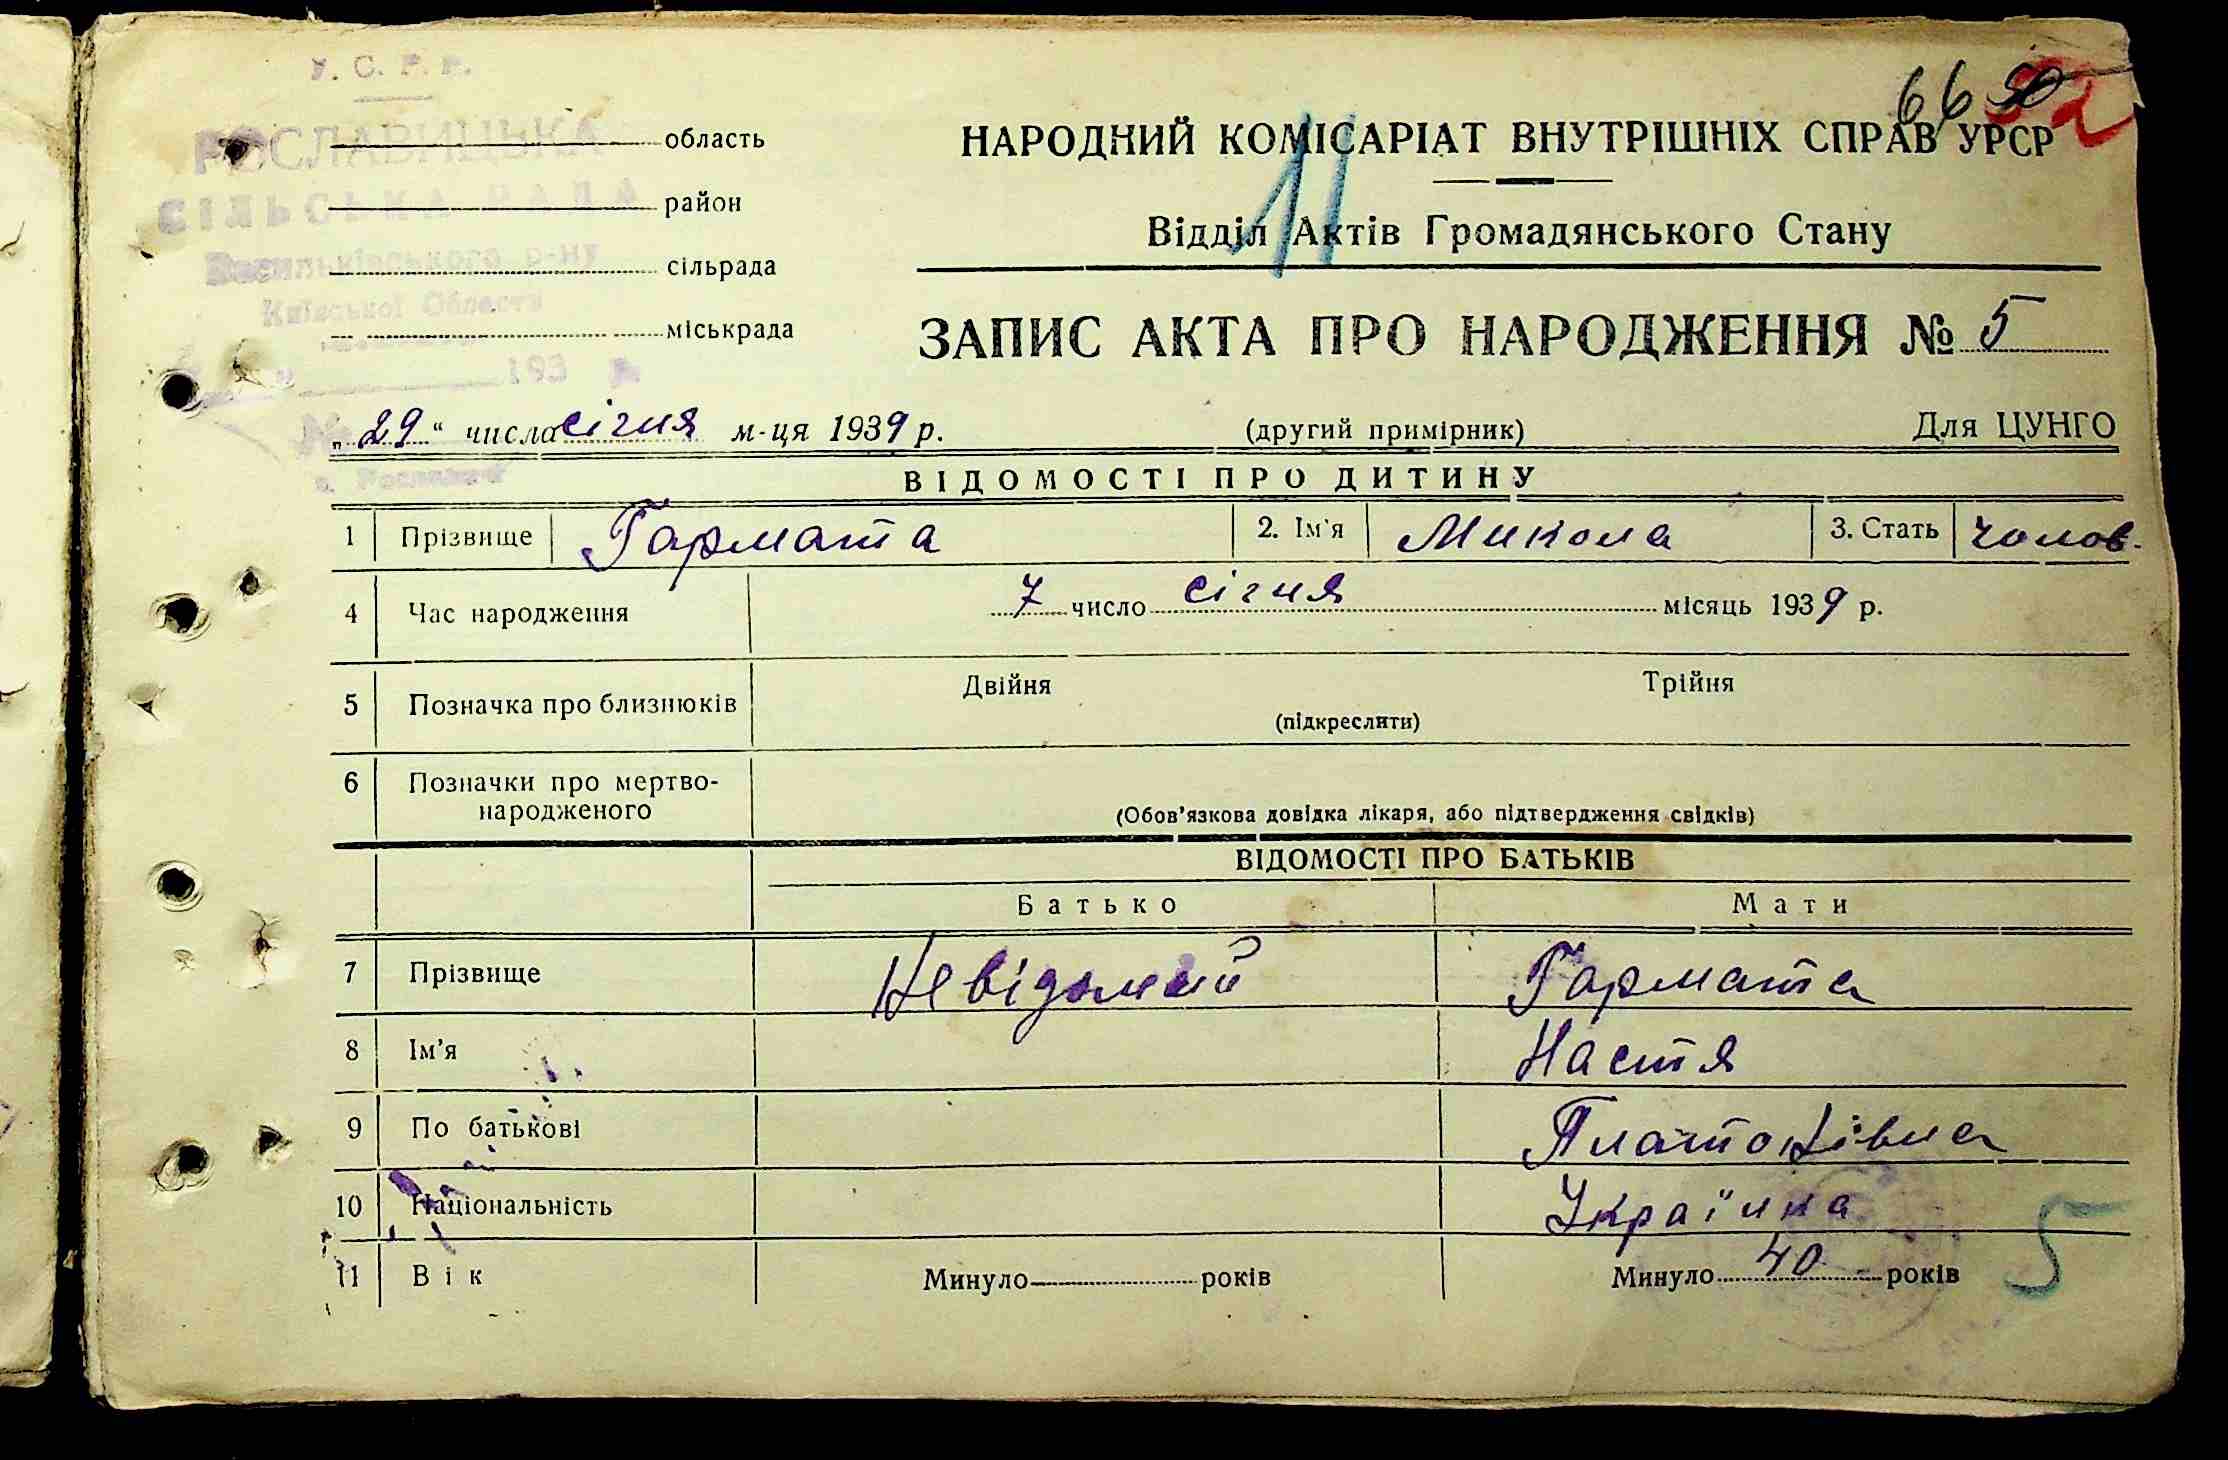 У. С. Р. Р.
РОСЛАВИЦЬКА
СІЛЬСЬКА РАДА
Васильківського р-ну
Київської Області
193 р.
№
с. Рославичі
область
район
сільрада
міськрада
66 50
НАРОДНИЙ КОМІСАРІАТ ВНУТРІШНІХ СПРАВ УРСР
11
Відділ Актів Громадянського Стану
ЗАПИС АКТА ПРО НАРОДЖЕННЯ № 5
„29“ числа січня м-ця 1939 р. (другий примірник) Для ЦУНГО
ВІДОМОСТІ ПРО ДИТИНУ
1 Прізвище Гармата 2. Ім'я Микола 3. Стать чолов.
4 Час народження 7 число січня місяць 1939 р.
5 Позначка про близнюків Двійня Трійня
(підкреслити)
6 Позначки про мертво-
народженого
(Обов'язкова довідка лікаря, або підтвердження свідків)
ВІДОМОСТІ ПРО БАТЬКІВ
Батько Мати
7 Прізвище Невідомий Гармата
8 Ім'я Настя
9 По батькові Платонівна
10 Національність Українка
11 Вік Минуло років Минуло 40 років
5